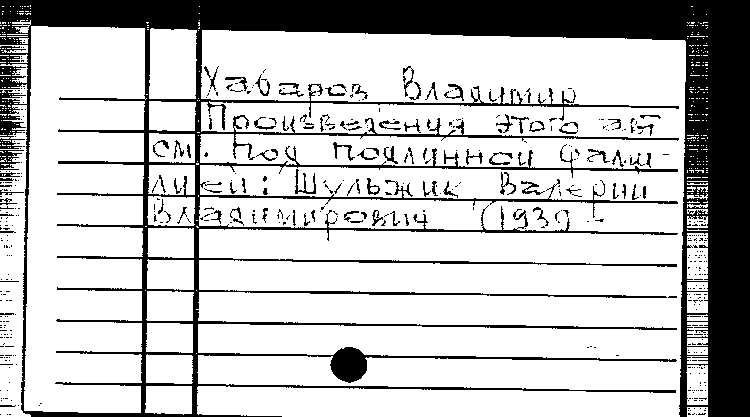 Хабаров Владимир
Произведения этого авт
см. под подлинной фами-
лией: Шульжик, Валерий
Владимирович (1939 -